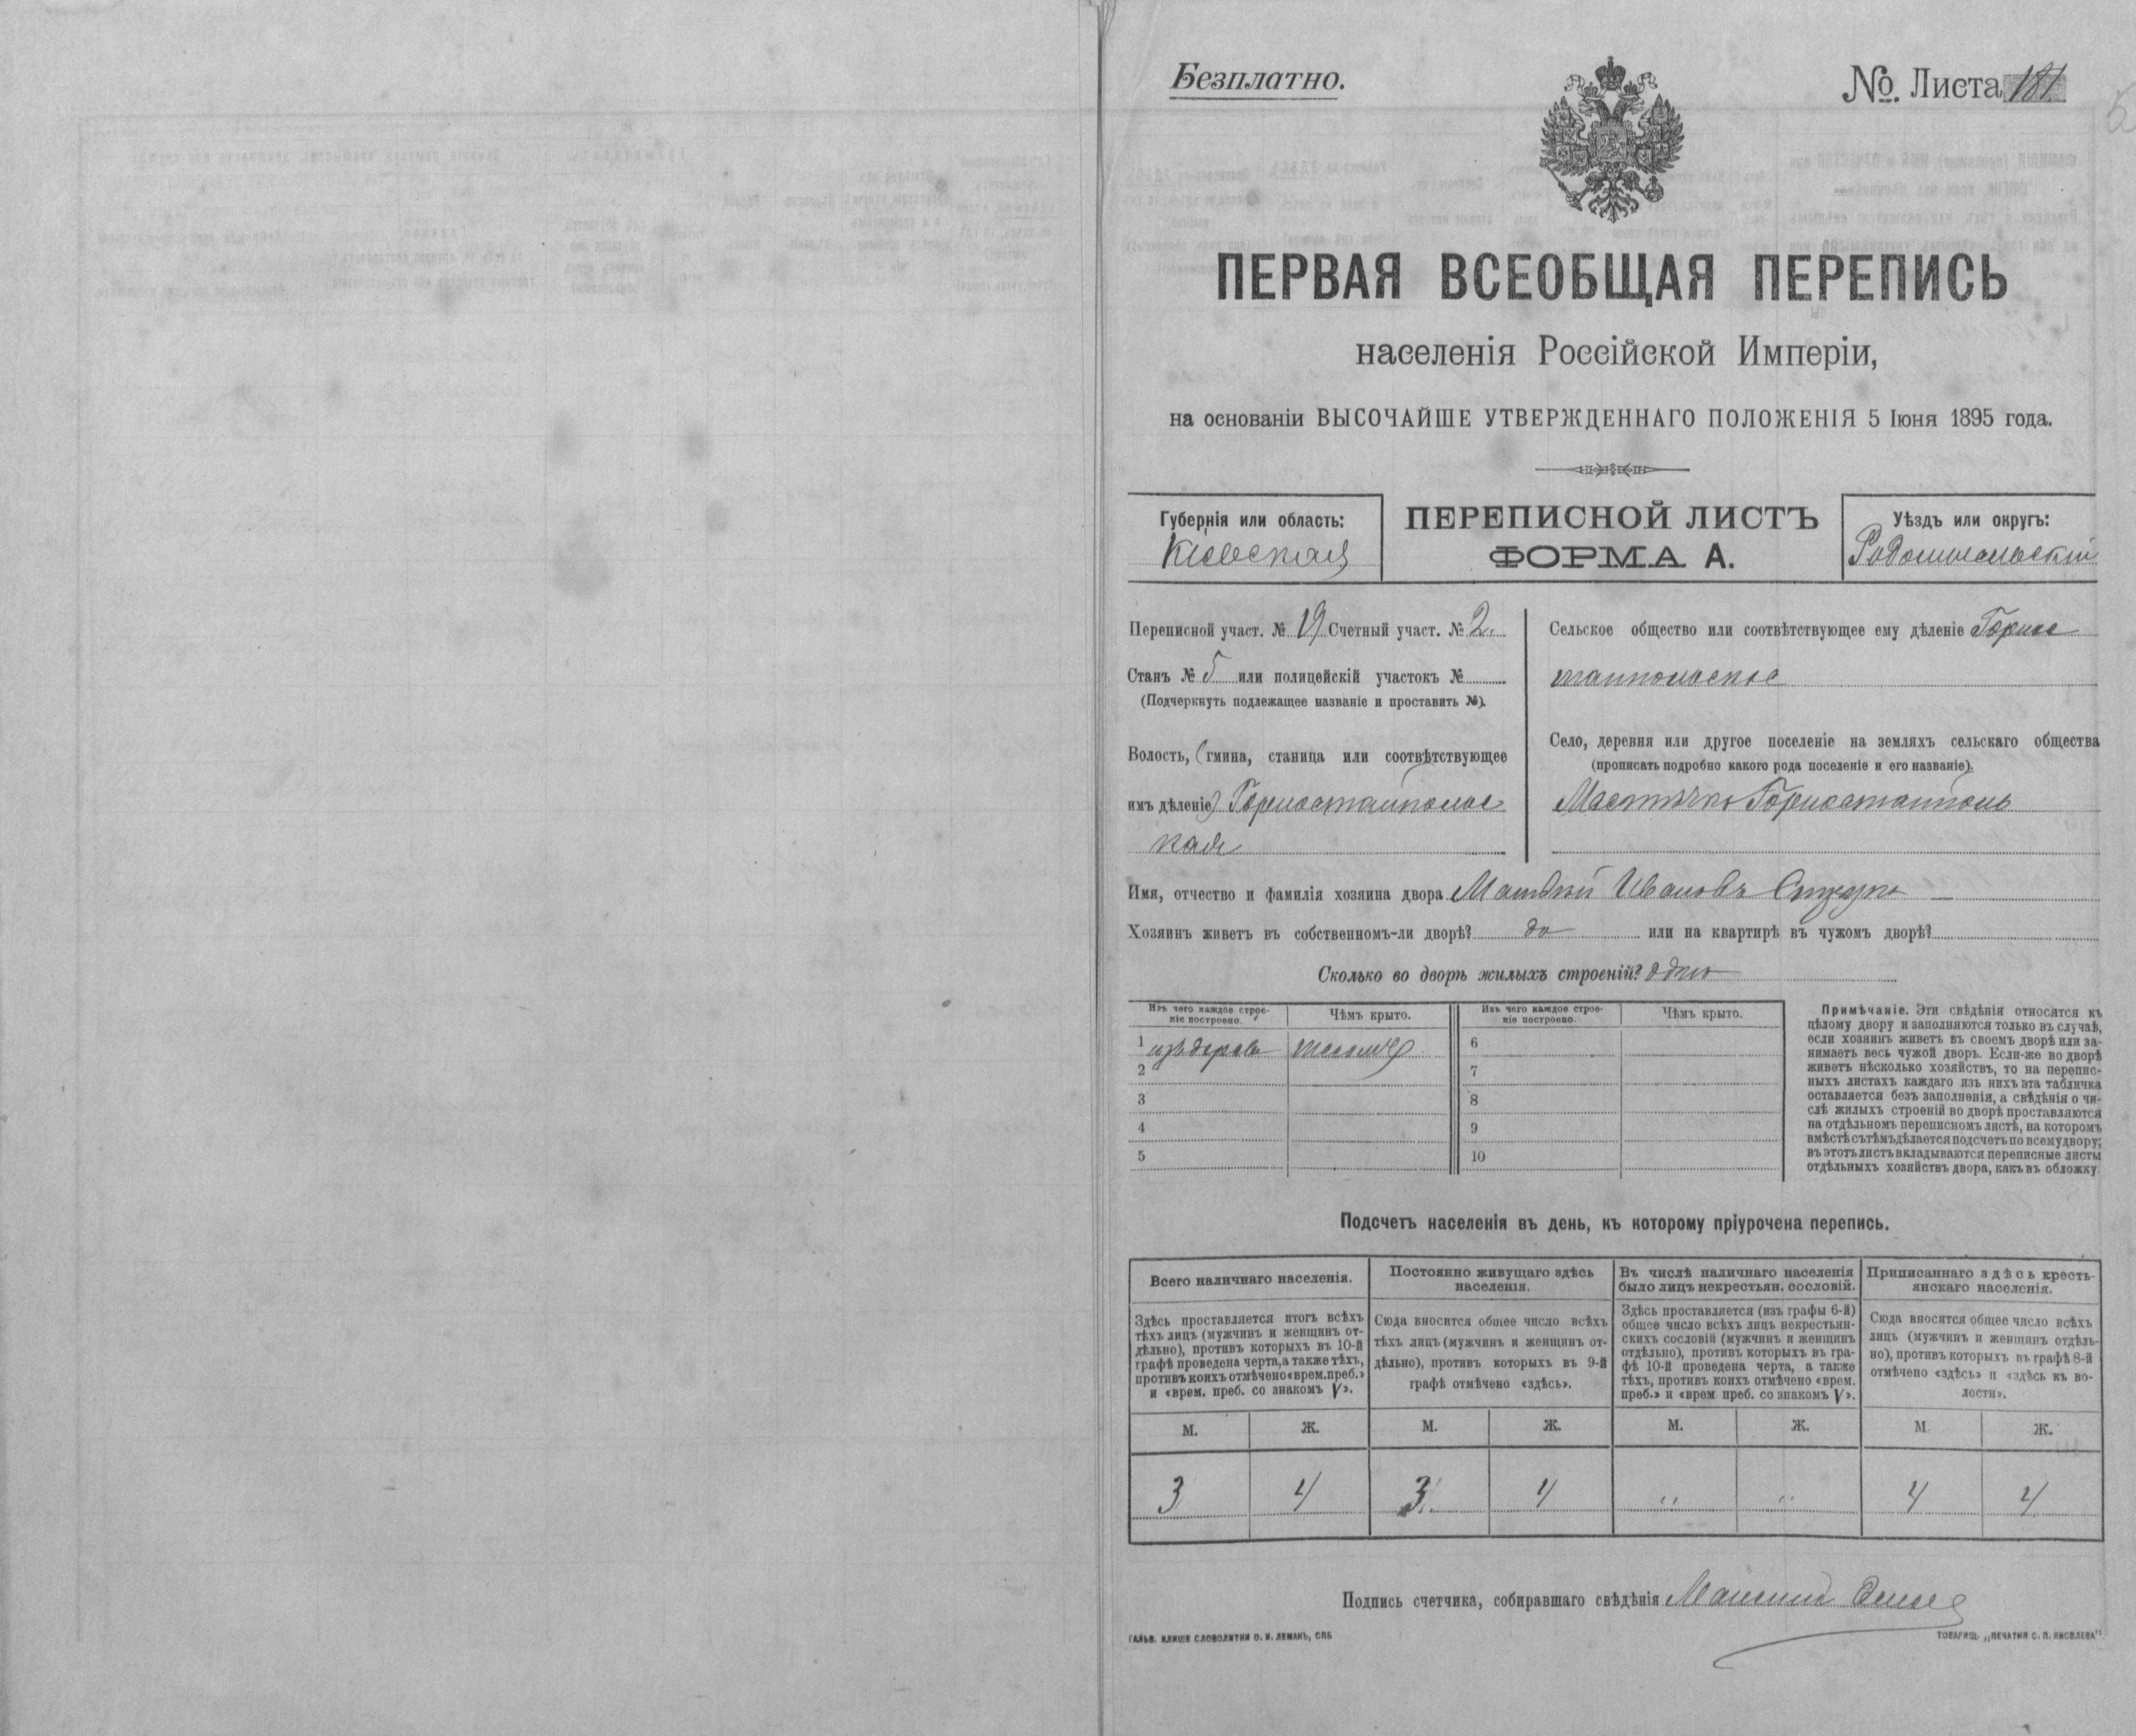 Безплатно.
№ Листа 181
ПЕРВАЯ ВСЕОБЩАЯ ПЕРЕПИСЬ
населенія Россійской Имперіи,
на основаніи ВЫСОЧАЙШЕ УТВЕРЖДЕННАГО ПОЛОЖЕНІЯ 5 Іюня 1895 года.
Губернія или область:
Кіевская
ПЕРЕПИСНОЙ ЛИСТЪ
ФОРМА А.
Уѣздъ или округъ:
Радомысльскій
Переписной участ. № 19 Счетный участ. № 2.
Станъ № 5 или полицейскій участокъ №
(Подчеркнуть подлежащее названіе и проставить №).
Волость, (гмина, станица или соотвѣтствующее
имъ дѣленіе) Горностайпольс
кая
Сельское общество или соотвѣтствующее ему дѣленіе Горнос
тайпольское
Село, деревня или другое поселеніе на земляхъ сельскаго общества
(прописать подробно какого рода поселеніе и его названіе).
Мѣстечко Горностайполь
Имя, отчество и фамилія хозяина двора Ивановъ
Хозяинъ живетъ въ собственномъ-ли дворѣ? да или на квартирѣ въ чужомъ дворѣ?
Сколько во дворѣ жилыхъ строеній? одно
Изъ чего каждое строе-
ніе построено.
Чѣмъ крыто.
Изъ чего каждое строе-
ніе построено.
Чѣмъ крыто.
1 изъ дерева 6
2 7
3 8
4 9
5 10
Примѣчаніе. Эти свѣдѣнія относятся къ
цѣлому двору и заполняются только въ случаѣ,
если хозяинъ живетъ въ своемъ дворѣ или за-
нимаетъ весь чужой дворъ. Если-же во дворѣ
живетъ нѣсколько хозяйствъ, то на перепис-
ныхъ листахъ каждаго изъ нихъ эта табличка
оставляется безъ заполненія, а свѣдѣнія о чи-
слѣ жилыхъ строеній во дворѣ проставляются
на отдѣльномъ переписномъ листѣ, на которомъ
вмѣстѣ съ тѣмъ дѣлается подсчетъ по всему двору;
въ этотъ листъ вкладываются переписные листы
отдѣльныхъ хозяйствъ двора, какъ въ обложку.
Подсчетъ населенія въ день, къ которому пріурочена перепись.
Всего наличнаго населенія.
Здѣсь проставляется итогъ всѣхъ
тѣхъ лицъ (мужчинъ и женщинъ от-
дѣльно), противъ которыхъ въ 10-й
графѣ проведена черта, а также тѣхъ,
противъ коихъ отмѣчено «врем. преб.»
и «врем. преб. со знакомъ V».
Постоянно живущаго здѣсь
населенія.
Сюда вносится общее число всѣхъ
тѣхъ лицъ (мужчинъ и женщинъ от-
дѣльно), противъ которыхъ въ 9-й
графѣ отмѣчено «здѣсь».
Въ числѣ наличнаго населенія
было лицъ некрестьян. сословій.
Здѣсь проставляется (изъ графы 6-й)
общее число всѣхъ лицъ некрестьян-
скихъ сословій (мужчинъ и женщинъ
отдѣльно), противъ которыхъ въ гра-
фѣ 10-й проведена черта, а также
тѣхъ, противъ коихъ отмѣчено «врем.
преб.» и «врем преб. со знакомъ V».
Приписаннаго здѣсь кресть-
янскаго населенія.
Сюда вносится общее число всѣхъ
лицъ (мужчинъ и женщинъ отдѣль-
но), противъ которыхъ въ графѣ 8-й
отмѣчено «здѣсь» и «здѣсь къ во-
лости».
М. Ж. М. Ж. М. Ж. М. Ж.
3 4 3. 4 " " 4 4
Подпись счетчика, собиравшаго свѣдѣнія
ГАЛЬВ. КЛИШЕ СЛОВОЛИТНИ О. И. ЛЕМАНЪ, СПБ
ТОВАРИЩ. „ПЕЧАТНЯ С. П. ЯКОВЛЕВА".